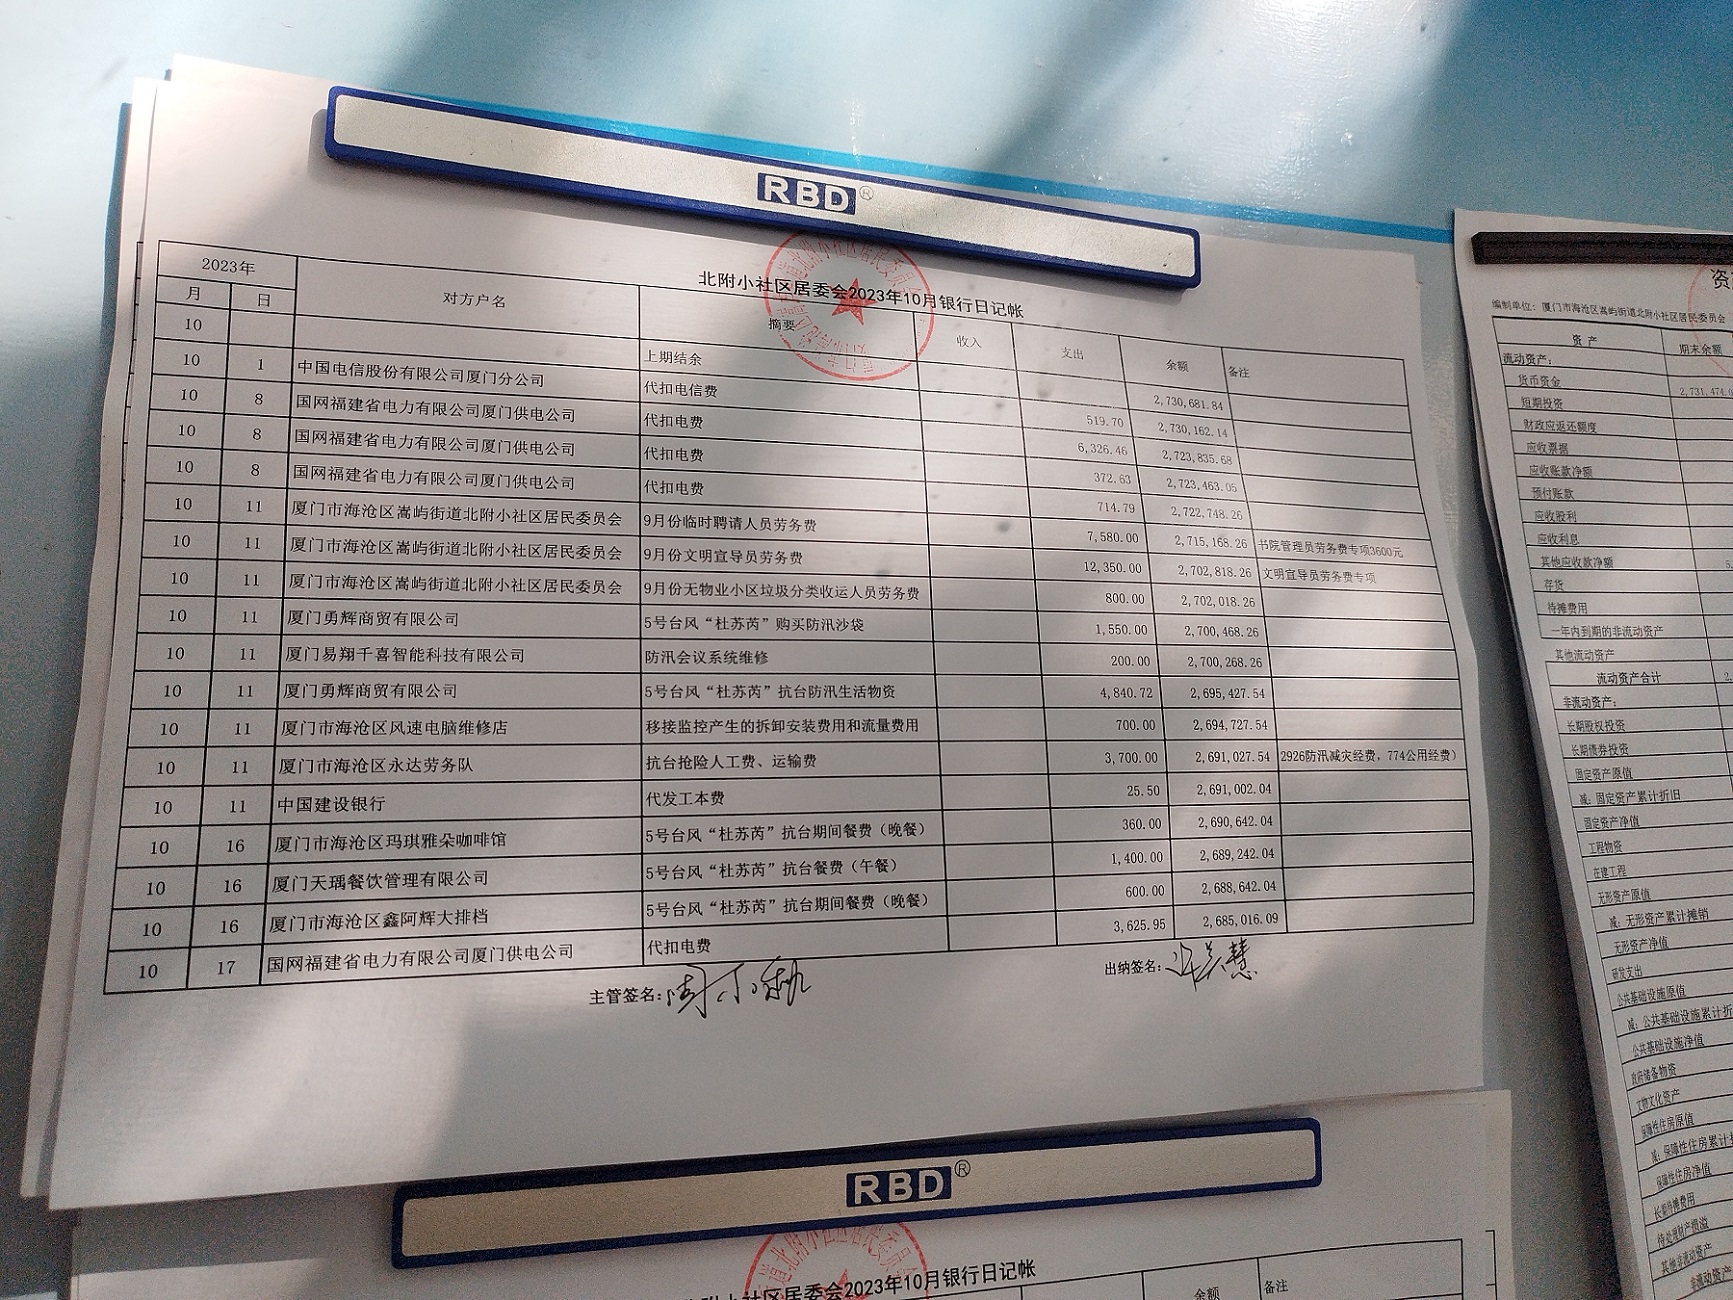 RBD®
北附小社区居委会2023年10月银行日记帐
2023年 对方户名 摘要 收入 支出 余额 备注
月 日
10 上期结余 2,730,681.84
10 1 中国电信股份有限公司厦门分公司 代扣电信费 519.70 2,730,162.14
10 8 国网福建省电力有限公司厦门供电公司 代扣电费 6,326.46 2,723,835.68
10 8 国网福建省电力有限公司厦门供电公司 代扣电费 372.63 2,723,463.05
10 8 国网福建省电力有限公司厦门供电公司 代扣电费 714.79 2,722,748.26
10 11 厦门市海沧区嵩屿街道北附小社区居民委员会 9月份临时聘请人员劳务费 7,580.00 2,715,168.26 书院管理员劳务费专项3600元
10 11 厦门市海沧区嵩屿街道北附小社区居民委员会 9月份文明宣导员劳务费 12,350.00 2,702,818.26 文明宣导员劳务费专项
10 11 厦门市海沧区嵩屿街道北附小社区居民委员会 9月份无物业小区垃圾分类收运人员劳务费 800.00 2,702,018.26
10 11 厦门勇辉商贸有限公司 5号台风“杜苏芮”购买防汛沙袋 1,550.00 2,700,468.26
10 11 厦门易翔千喜智能科技有限公司 防汛会议系统维修 200.00 2,700,268.26
10 11 厦门勇辉商贸有限公司 5号台风“杜苏芮”抗台防汛生活物资 4,840.72 2,695,427.54
10 11 厦门市海沧区风速电脑维修店 移接监控产生的拆卸安装费用和流量费用 700.00 2,694,727.54
10 11 厦门市海沧区永达劳务队 抗台抢险人工费、运输费 3,700.00 2,691,027.54 2926防汛减灾经费，774公用经费）
10 11 中国建设银行 代发工本费 25.50 2,691,002.04
10 16 厦门市海沧区玛琪雅朵咖啡馆 5号台风“杜苏芮”抗台期间餐费（晚餐） 360.00 2,690,642.04
10 16 厦门天瑀餐饮管理有限公司 5号台风“杜苏芮”抗台餐费（午餐） 1,400.00 2,689,242.04
10 16 厦门市海沧区鑫阿辉大排档 5号台风“杜苏芮”抗台期间餐费（晚餐） 600.00 2,688,642.04
10 17 国网福建省电力有限公司厦门供电公司 代扣电费 3,625.95 2,685,016.09
主管签名： 出纳签名：
RBD®
社区居委会2023年10月银行日记帐
余额 备注
资
编制单位：厦门市海沧区嵩屿街道北附小社区居民委员会
资 产 期末余额
流动资产：
货币资金 2,731,474.
短期投资
财政应返还额度
应收票据
应收账款净额
预付账款
应收股利
应收利息
其他应收款净额
存货
待摊费用
一年内到期的非流动资产
其他流动资产
流动资产合计
非流动资产：
长期股权投资
长期债券投资
固定资产原值
减：固定资产累计折旧
固定资产净值
工程物资
在建工程
无形资产原值
减：无形资产累计摊销
无形资产净值
研发支出
公共基础设施原值
减：公共基础设施累计折
公共基础设施净值
政府储备物资
文物文化资产
保障性住房原值
减：保障性住房累计
保障性住房净值
长期待摊费用
待处理财产损溢
其他非流动资产
非流动资产